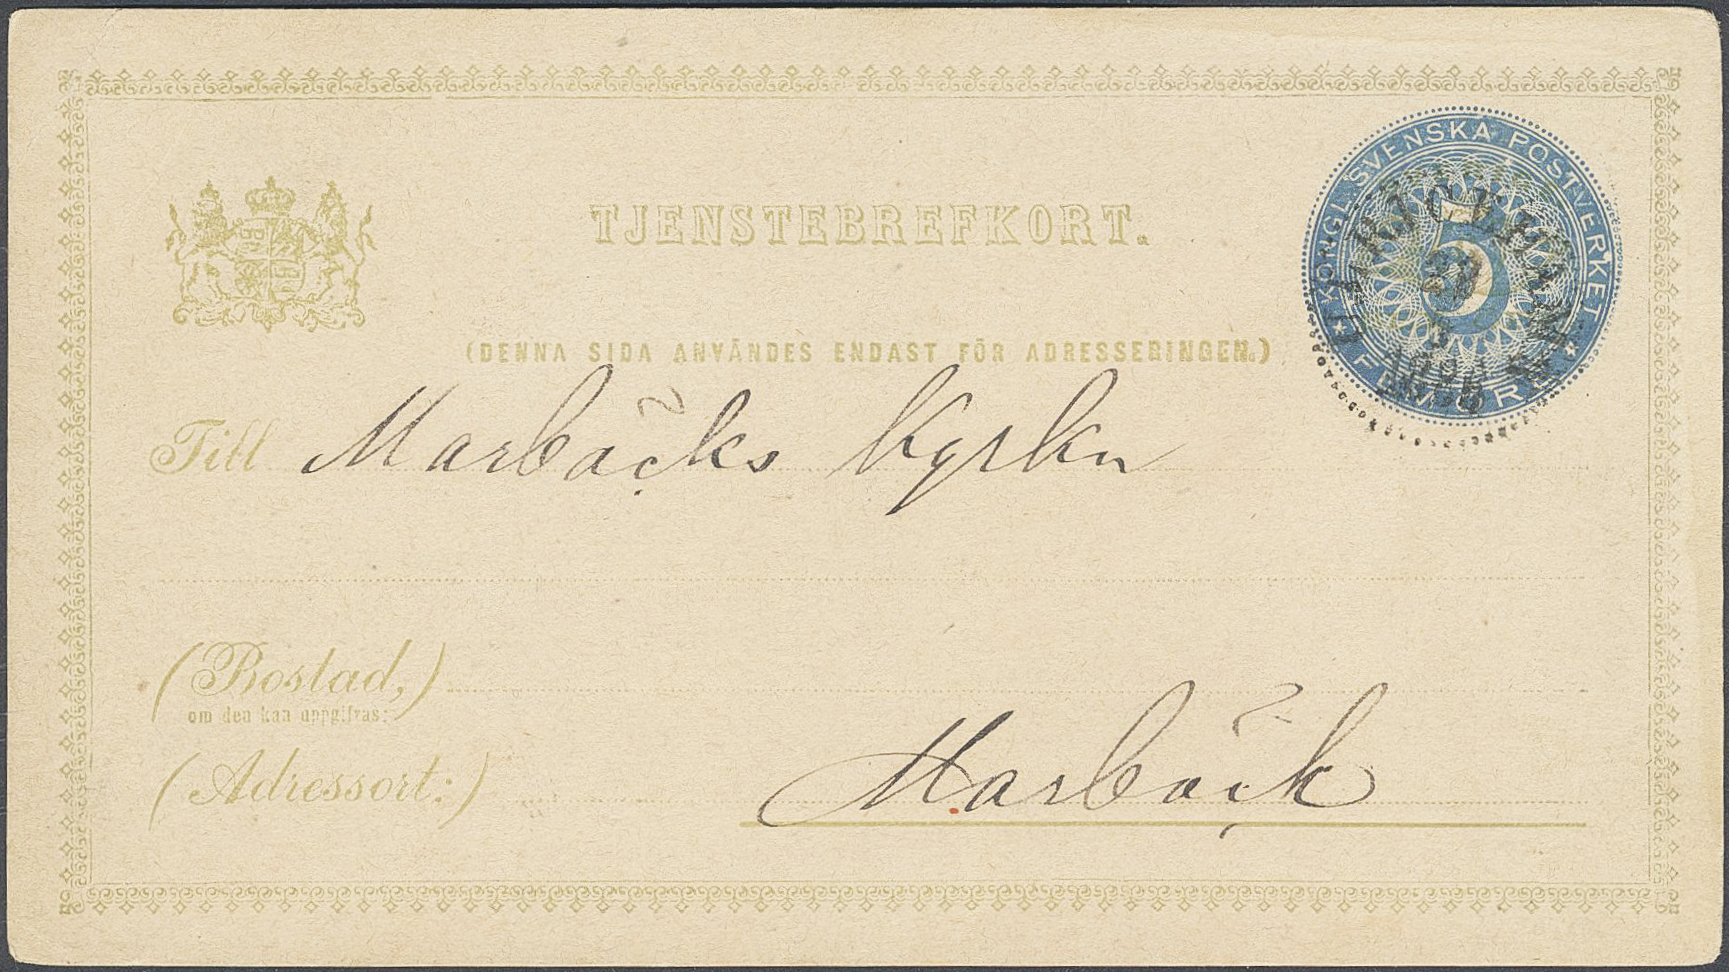 TJENSTEBREFKORT.
(DENNA SIDA ANVÄNDES ENDAST FÖR ADRESSERINGEN.)
KONGL. SVENSKA POSTVERKET
5
FEM ÖRE
ULRICEHAMN
1886
Till Marbäcks Kyrka
(Bostad,)
om den kan uppgifvas:
(Adressort:) Marbäck